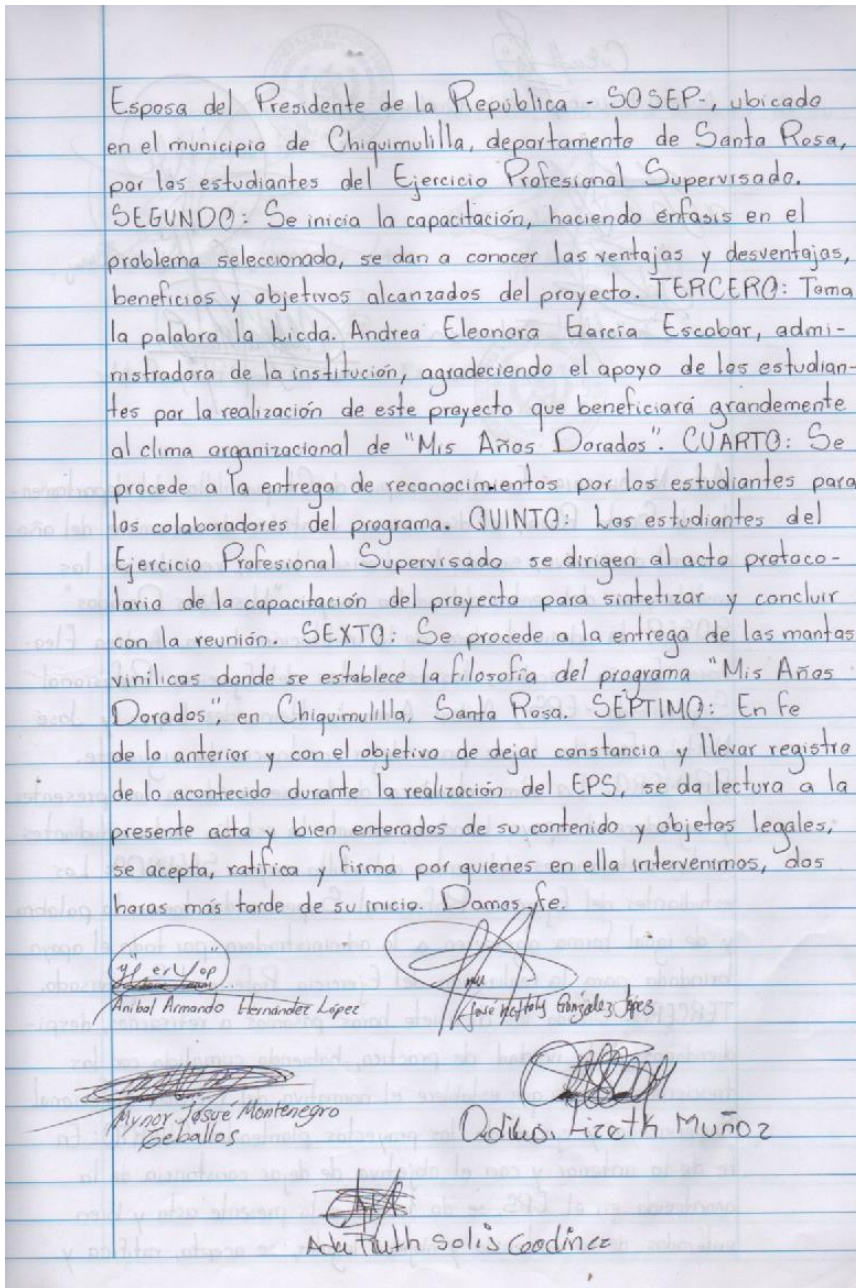 Esposa del Presidente de la República - SOSEP-, ubicado
en el municipio de Chiquimulilla, departamento de Santa Rosa,
por los estudiantes del Ejercicio Profesional Supervisado.
SEGUNDO: Se inicia la capacitación, haciendo énfasis en el
problema seleccionado, se dan a conocer las ventajas y desventajas,
beneficios y objetivos alcanzados del proyecto. TERCERO: Toma
la palabra la Licda. Andrea Eleonora García Escobar, admi-
nistradora de la institución, agradeciendo el apoyo de los estudian-
tes por la realización de este proyecto que beneficiará grandemente
al clima organizacional de "Mis Años Dorados". CUARTO: Se
procede a la entrega de reconocimientos por los estudiantes para
los colaboradores del programa. QUINTO: Los estudiantes del
Ejercicio Profesional Supervisado se dirigen al acto protoco-
lario de la capacitación del proyecto para sintetizar y concluir
con la reunión. SEXTO: Se procede a la entrega de las mantas
vinílicas donde se establece la filosofía del programa "Mis Años
Dorados", en Chiquimulilla, Santa Rosa. SÉPTIMO: En fe
de lo anterior y con el objetivo de dejar constancia y llevar registro
de lo acontecido durante la realización del EPS, se da lectura a la
presente acta y bien enterados de su contenido y objetos legales,
se acepta, ratifica y firma por quienes en ella intervenimos, dos
horas más tarde de su inicio. Damos fe.
Aníbal Armando Hernández López
José Neftaly González López
Mynor Josué Montenegro
Ceballos
Lizeth Muñoz
Ruth Solis Godinez